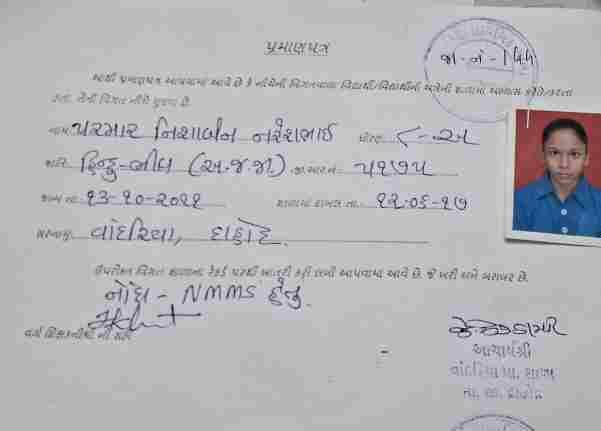 પ્રમાણપત્ર
જા.નં.-144
આથી પ્રમાણપત્ર આપવામાં આવે છે કે નીચેની વિગતવાળા વિદ્યાર્થી/વિદ્યાર્થીની અત્રેની શાળામાં અભ્યાસ કરે છે/કરતા
હતા. તેની વિગત નીચે મુજબ છે.
નામ પરમાર નિશાબેન નરેશભાઈ ધોરણ ૮-અ
જાતિ હિન્દુ-ભીલ (અ.જ.જા) જી.આર.નં. ૫૧૭૫
જન્મ તા. ૧૩-૧૦-૨૦૧૧ શાળામાં દાખલ તા. ૧૨-૦૬-૧૭
સરનામું વાંદરિયા, દાહોદ.
ઉપરોક્ત વિગત શાળાના રેકર્ડ પરથી ખાતરી કરી લખી આપવામાં આવે છે. જે ખરી અને બરાબર છે.
નોંધ - NMMS હેતુ.
વર્ગ શિક્ષકશ્રીની સહી
આચાર્યશ્રી
વાંદરિયા પ્રા. શાળા
તા. જી. દાહોદ